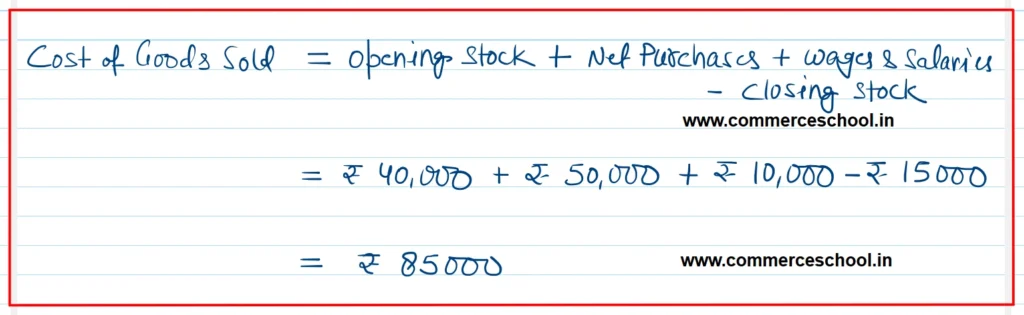 Cost of Goods Sold = Opening Stock + Net Purchases + Wages & Salaries
- Closing Stock
www.commerceschool.in
= ₹ 40,000 + ₹ 50,000 + ₹ 10,000 - ₹ 15000
= ₹ 85000
www.commerceschool.in